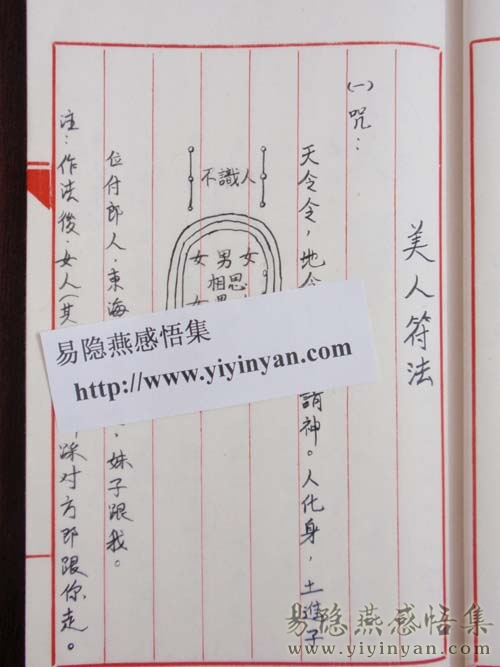 美人符法
(一) 咒：
天令令，地令請神。人化身，土進子
不識人
女 男 女
相思
女
位付郎人，東海，妹子跟我。
注：作法後，女人(其踩对方即跟你走。
易隐燕感悟集
http://www.yiyinyan.com
易隐燕感悟集
www.yiyinyan.com